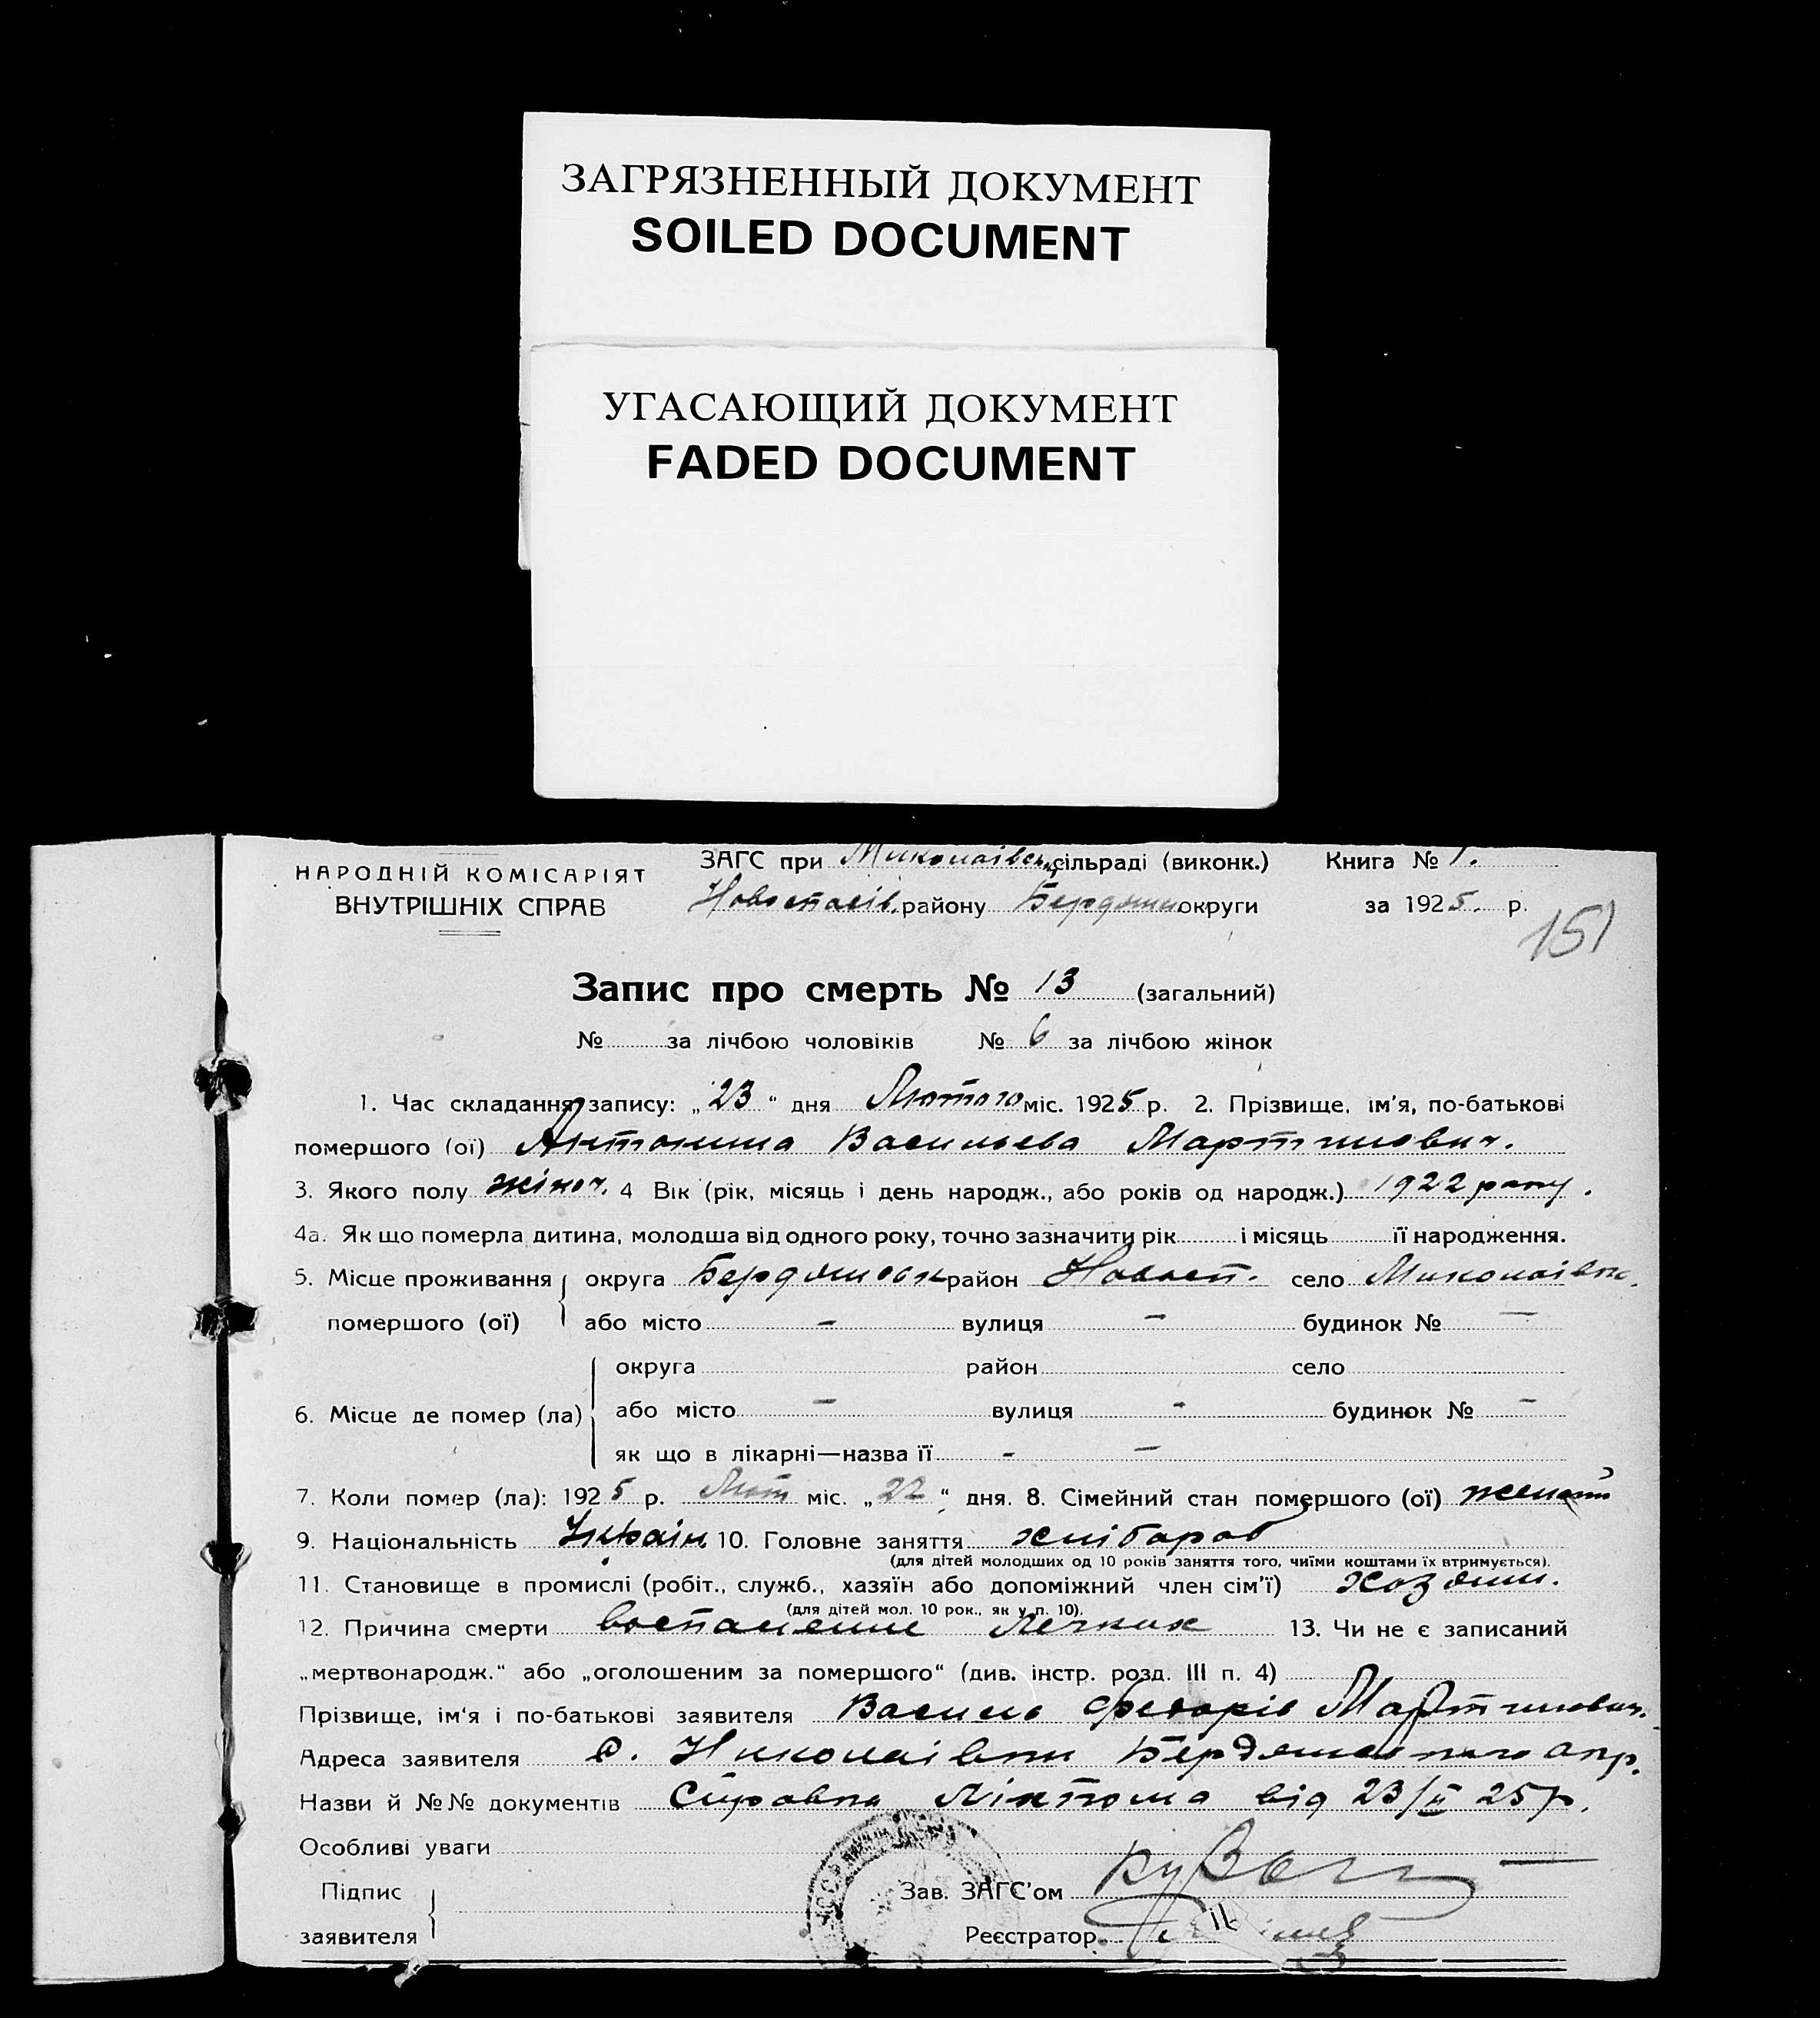 ЗАГРЯЗНЕННЫЙ ДОКУМЕНТ
SOILED DOCUMENT
УГАСАЮЩИЙ ДОКУМЕНТ
FADED DOCUMENT
НАРОДНІЙ КОМІСАРІЯТ
ВНУТРІШНІХ СПРАВ
ЗАГС при Миколаївськ. сільраді (виконк.) Книга № 1.
Новоспасів. району Бердянськ округи за 1925. р.
151
Запис про смерть № 13 (загальний)
№ за лічбою чоловіків № 6 за лічбою жінок
1. Час складання запису: „23“ дня Лютого міс. 1925 р. 2. Прізвище, ім'я, по-батькові
помершого (ої) Антонина Васильева Мартинович.
3. Якого полу жіноч. 4 Вік (рік, місяць і день народж., або років од народж.) 1922 року.
4а. Як що померла дитина, молодша від одного року, точно зазначити рік і місяць її народження.
5. Місце проживання округа Бердянськ район Новосп. село Миколаівк.
помершого (ої) або місто – вулиця – будинок № –
округа район село
6. Місце де помер (ла) або місто – вулиця - будинок № –
як що в лікарні—назва її - –
7. Коли помер (ла): 1925 р. Лют міс. „22“ дня. 8. Сімейний стан помершого (ої)
9. Національність Україн. 10. Головне заняття хлібороб
(для дітей молодших од 10 років заняття того, чиїми коштами їх втримується).
11. Становище в промислі (робіт., служб., хазяїн або допоміжний член сім'ї) хозяин.
(для дітей мол. 10 рок., як у п. 10).
12. Причина смерти воспаление Легких 13. Чи не є записаний
„мертвонародж.“ або „оголошеним за помершого“ (див. інстр. розд. III п. 4)
Прізвище, ім'я і по-батькові заявителя Василь Федорів Мартинович.
Адреса заявителя с. Николаівки Бердянського окр.
Назви й №№ документів Справка Лікпома від 23/II 25 р.
Особливі уваги —
Підпис
заявителя
Зав. ЗАГС'ом
Реєстратор